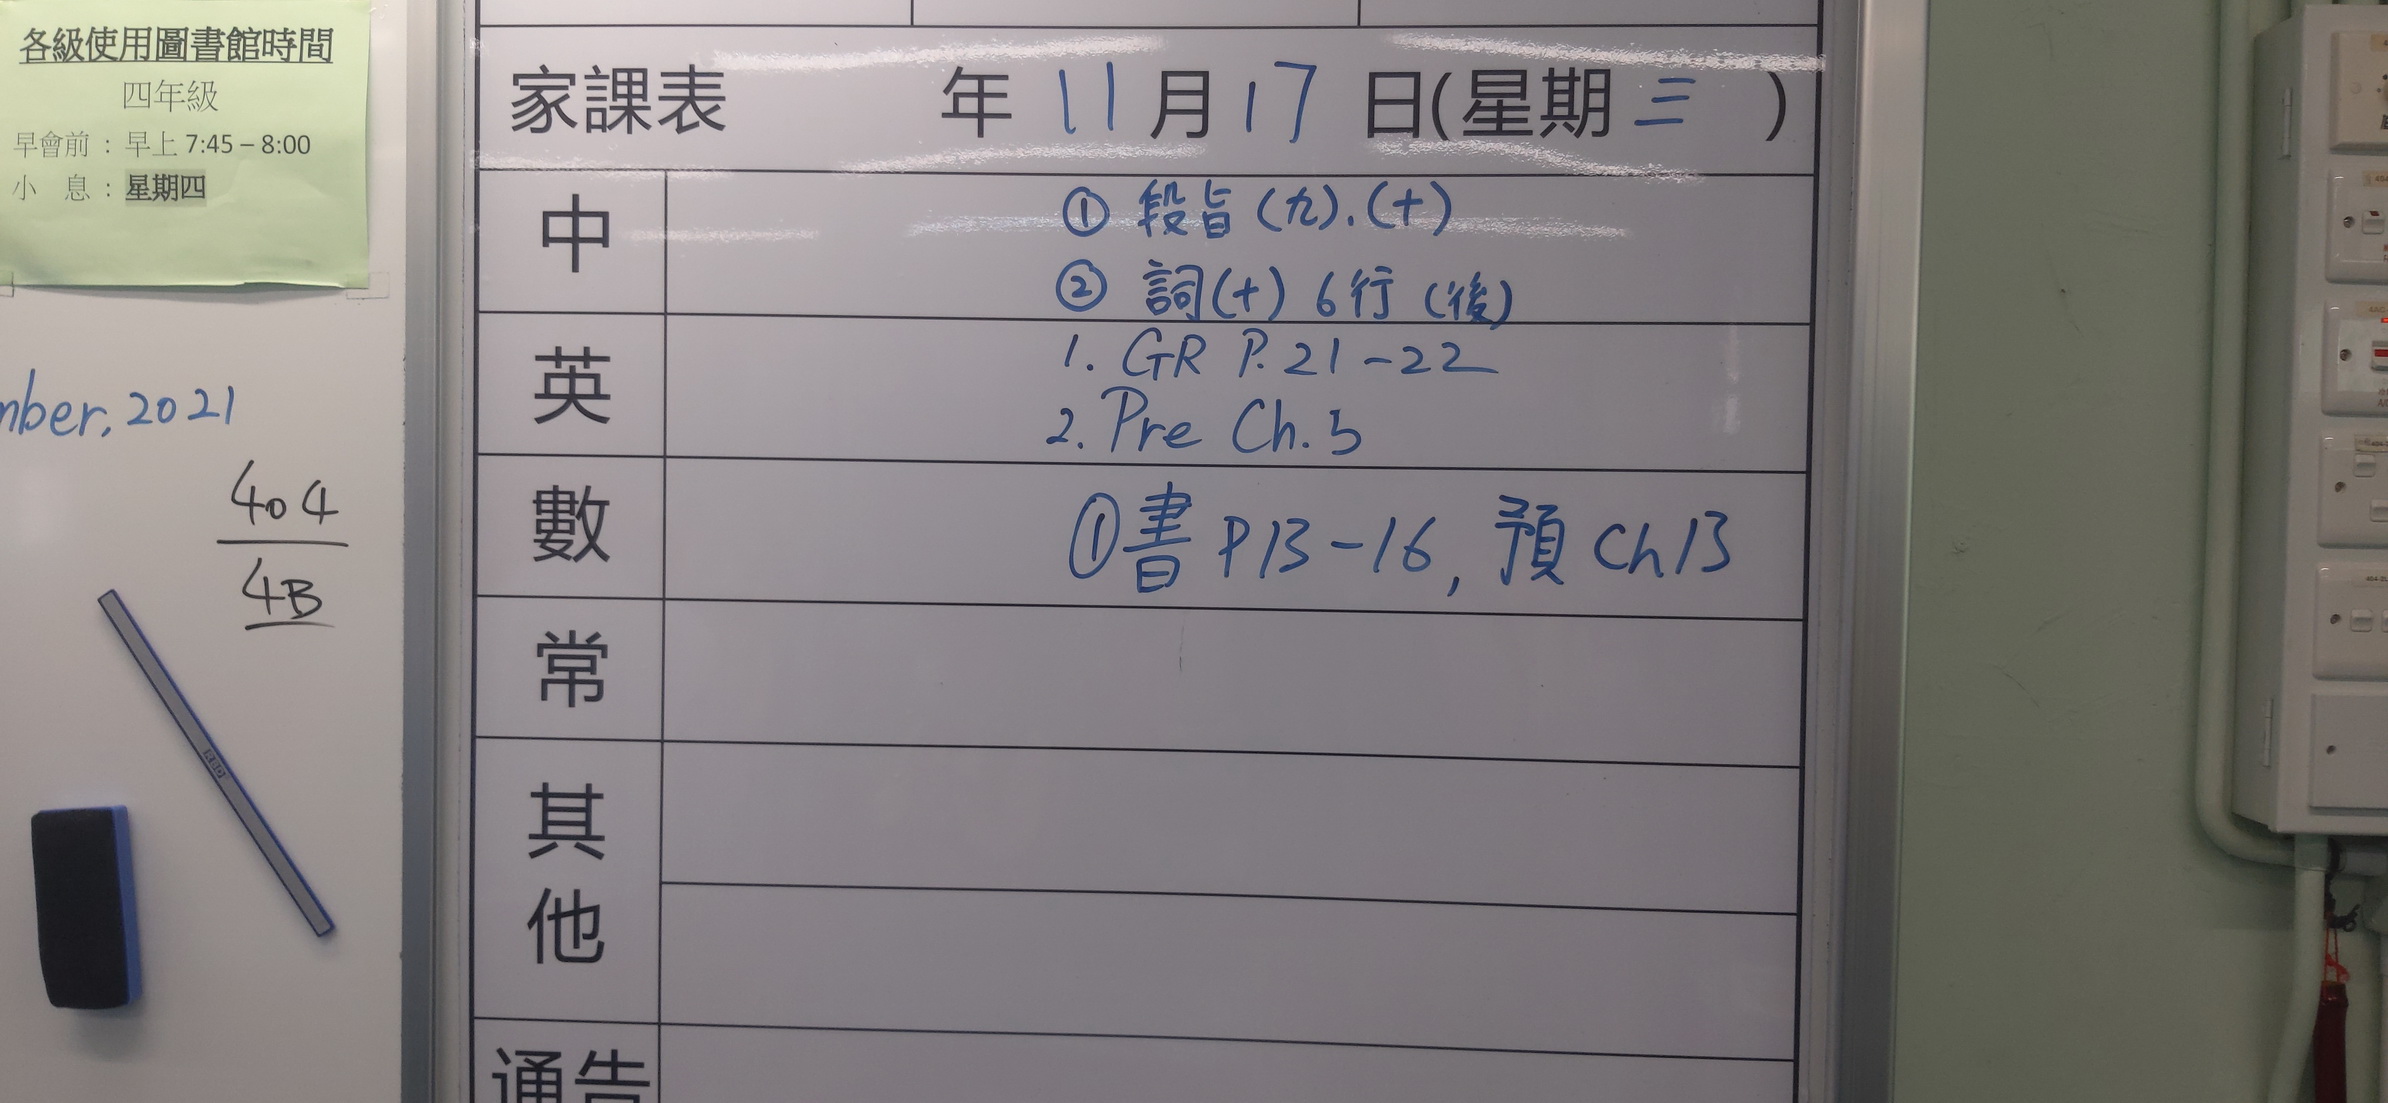 各級使用圖書館時間
四年級
早會前 : 早上 7:45 – 8:00
小 息 : 星期四
mber, 2021
404
4B
家課表 年 11 月 17 日(星期 三 )
中
① 段旨 (九). (十)
② 詞(十) 6行 (後)
英
1. GR P. 21-22
2. Pre Ch. 5
數
① 書 P13-16, 預 Ch13
常
其他
通告